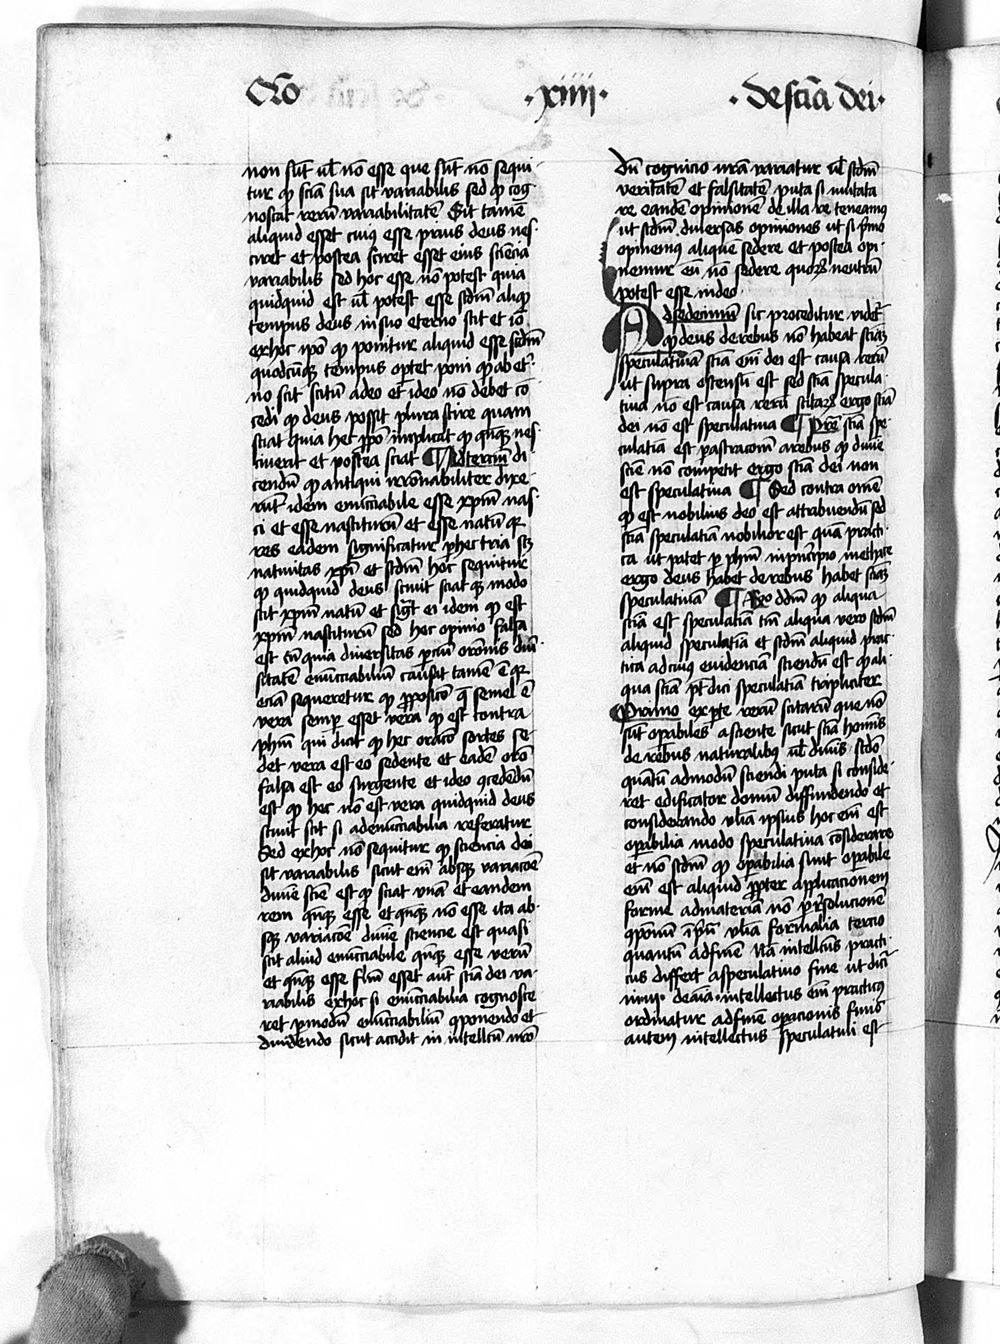 Qº xiiii de scīa dei
non sūt ul̄ nō esse que sūt nō sequi
tur ꝙ scīa sua sit variabilis sed ꝙ cog
noscat rerū variabilitatē Sit tamē
aliquid esset cuius esse prius deus nes
ciret et postea sciret esset eius sciēcia
variabilis sed hoc esse nō potest quia
quidquid est ul̄ potest esse scdm̄ aliqḋ
tempus deus in suo eterno scit et iō
ex hoc ipō ꝙ ponitur aliquid esse scdm̄
quodcūqꝫ tempus optet poni ꝙ ab et̄
no scit scitū a deo et ideo nō debet cō
cedi ꝙ deus possit plura scire quam
sciat quia hec ꝓpō implicat ꝙ qnqꝫ nes
ciuerit et postea sciat ¶ Ad terciū di
cendū ꝙ antiqui nōīales dixe
rūt idem enūciabile esse xp̄m nas
ci et esse nasciturū et esse natū qꝛ
res eadem significatur ꝑ hec tria scꝫ
natiuitas xpī et scdm̄ hoc sequitur
ꝙ quidquid deus sciuit sciat qꝫ modo
scit xp̄m natū et sigͣt ei idem ꝙ est
xp̄m nasciturū sed hec opinio falsa
est tū quia diuersitas ꝑciū oronis diū
sitatē enūciabiliū causat tamē ē qꝛ
eciā sequeretur ꝙ ꝓposicō q̄ semel ē
vera semꝑ esset vera ꝙ est contra
phm̄ qui dicit ꝙ hec oracō sortes se
det vera est eo sedente et eadē orō
falsa est eo surgente et ideo ꝯcedēdū
est ꝙ hec nō est vera quidquid deus
sciuit scit si ad enūciabilia referatur
Sed ex hoc nō sequitur ꝙ sciencia dei
sit variabilis sicut em̄ absqꝫ variacōē
diuīe sciē est ꝙ sciat vnā et eandem
rem qn̄qꝫ esse et qn̄qꝫ nō esse ita ab
sqꝫ variacōē diuīe sciencie est quasi
scit aliud enūciabile qn̄qꝫ esse verū
et qn̄qꝫ esse fl̄m esset aūt scīa dei va
riabilis ex hoc si enūciabilia cognosce
ret ꝑ modū enūciabiliū ꝯponendo et
diuidendo sicut accidit in intellcū nrō
Vn̄ cognicio nr̄a variatur ul̄ scdm̄
veritatē et falsitatē puta si mutata
re eandē opinionē de illa re teneamꝰ
ut scdm̄ diuersas opiniones ut si pͥmo
opinemur aliquē sedere et postea opi
nemur eū nō sedere quoꝝ neutrū
potest esse in deo
Ad sedecimū sic proceditur videt̄
ꝙ deus de rebus nō habeat sciāꝫ
speculatiuā scīa em̄ dei est causa rerū
ut supra ostensū est sed scīa specula
tiua nō est causa rerū scitaꝝ ergo scīa
dei nō est speculatiua ¶ Pret̄ scīa spe
culatīa est ꝑ abstraccōm̄ a rebus ꝙ diuīe
sciē nō competit ergo scīa dei non
est speculatiua ¶ Sed contra omē
ꝙ est nobilius deo est attribuendū sed
scīa speculatīa nobilior est quā practi
ca ut patet ꝑ phm̄ in pͥncipio methaꝑ
ergo deus habet de rebus habet sciāꝫ
speculatiuā ¶ Rꝰo dd̄m ꝙ aliqua
scīa est speculatīa tm̄ aliqua vero scdm̄
aliquid speculatīa et scdm̄ aliquid prac
tica ad cuiꝰ euidenciā sciendū est ꝙ ali
qua scīa pt̄ dici speculatīa tripliciter
Primo ex ꝑte rerū scitarū que nō
sūt oꝑabiles a sciente sicut scīa hominis
de rebus naturalibꝫ ul̄ diuīs scd̄o
quātū ad modū sciendi puta si conside
ret edificator domū diffiniendo et
considerando vl̄ia ipsius hoc em̄ est
oꝑabilia modo speculatiuo cōsiderare
et nō scdm̄ ꝙ oꝑabilia sunt oꝑabile
em̄ est aliquid ꝓpter applicacionem
forme ad materiā nō ꝑ resolucionē
ꝯpōiti ī pͥncipia vl̄ia formalia tercio
quantū ad finē Nā intellcūs practi
cus differt a speculatiuo fine ut dicit̄
in iii. de aīa intellectus em̄ practicꝰ
ordinatur ad finē opacionis finis
autem intellectus speculatiui est